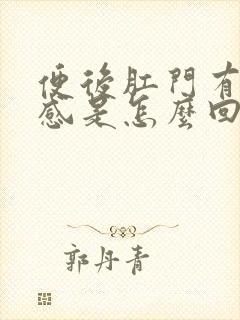 便後肛門有
感是怎麼回
郭丹青